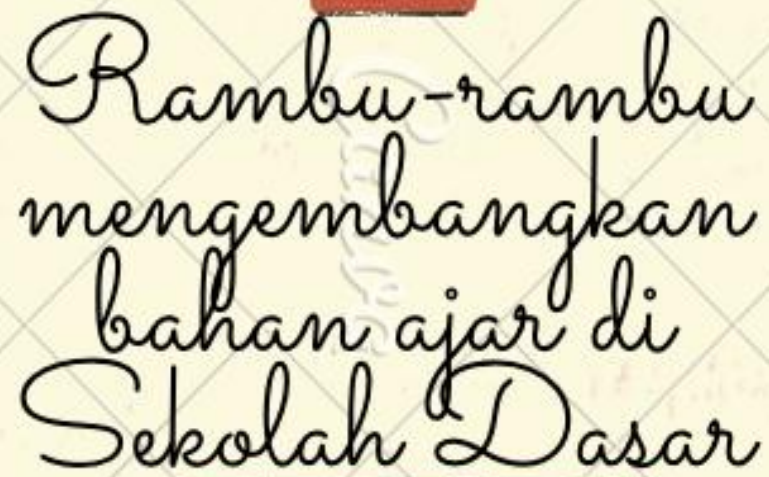 Rambu-rambu
mengembangkan
bahan ajar di
Sekolah Dasar